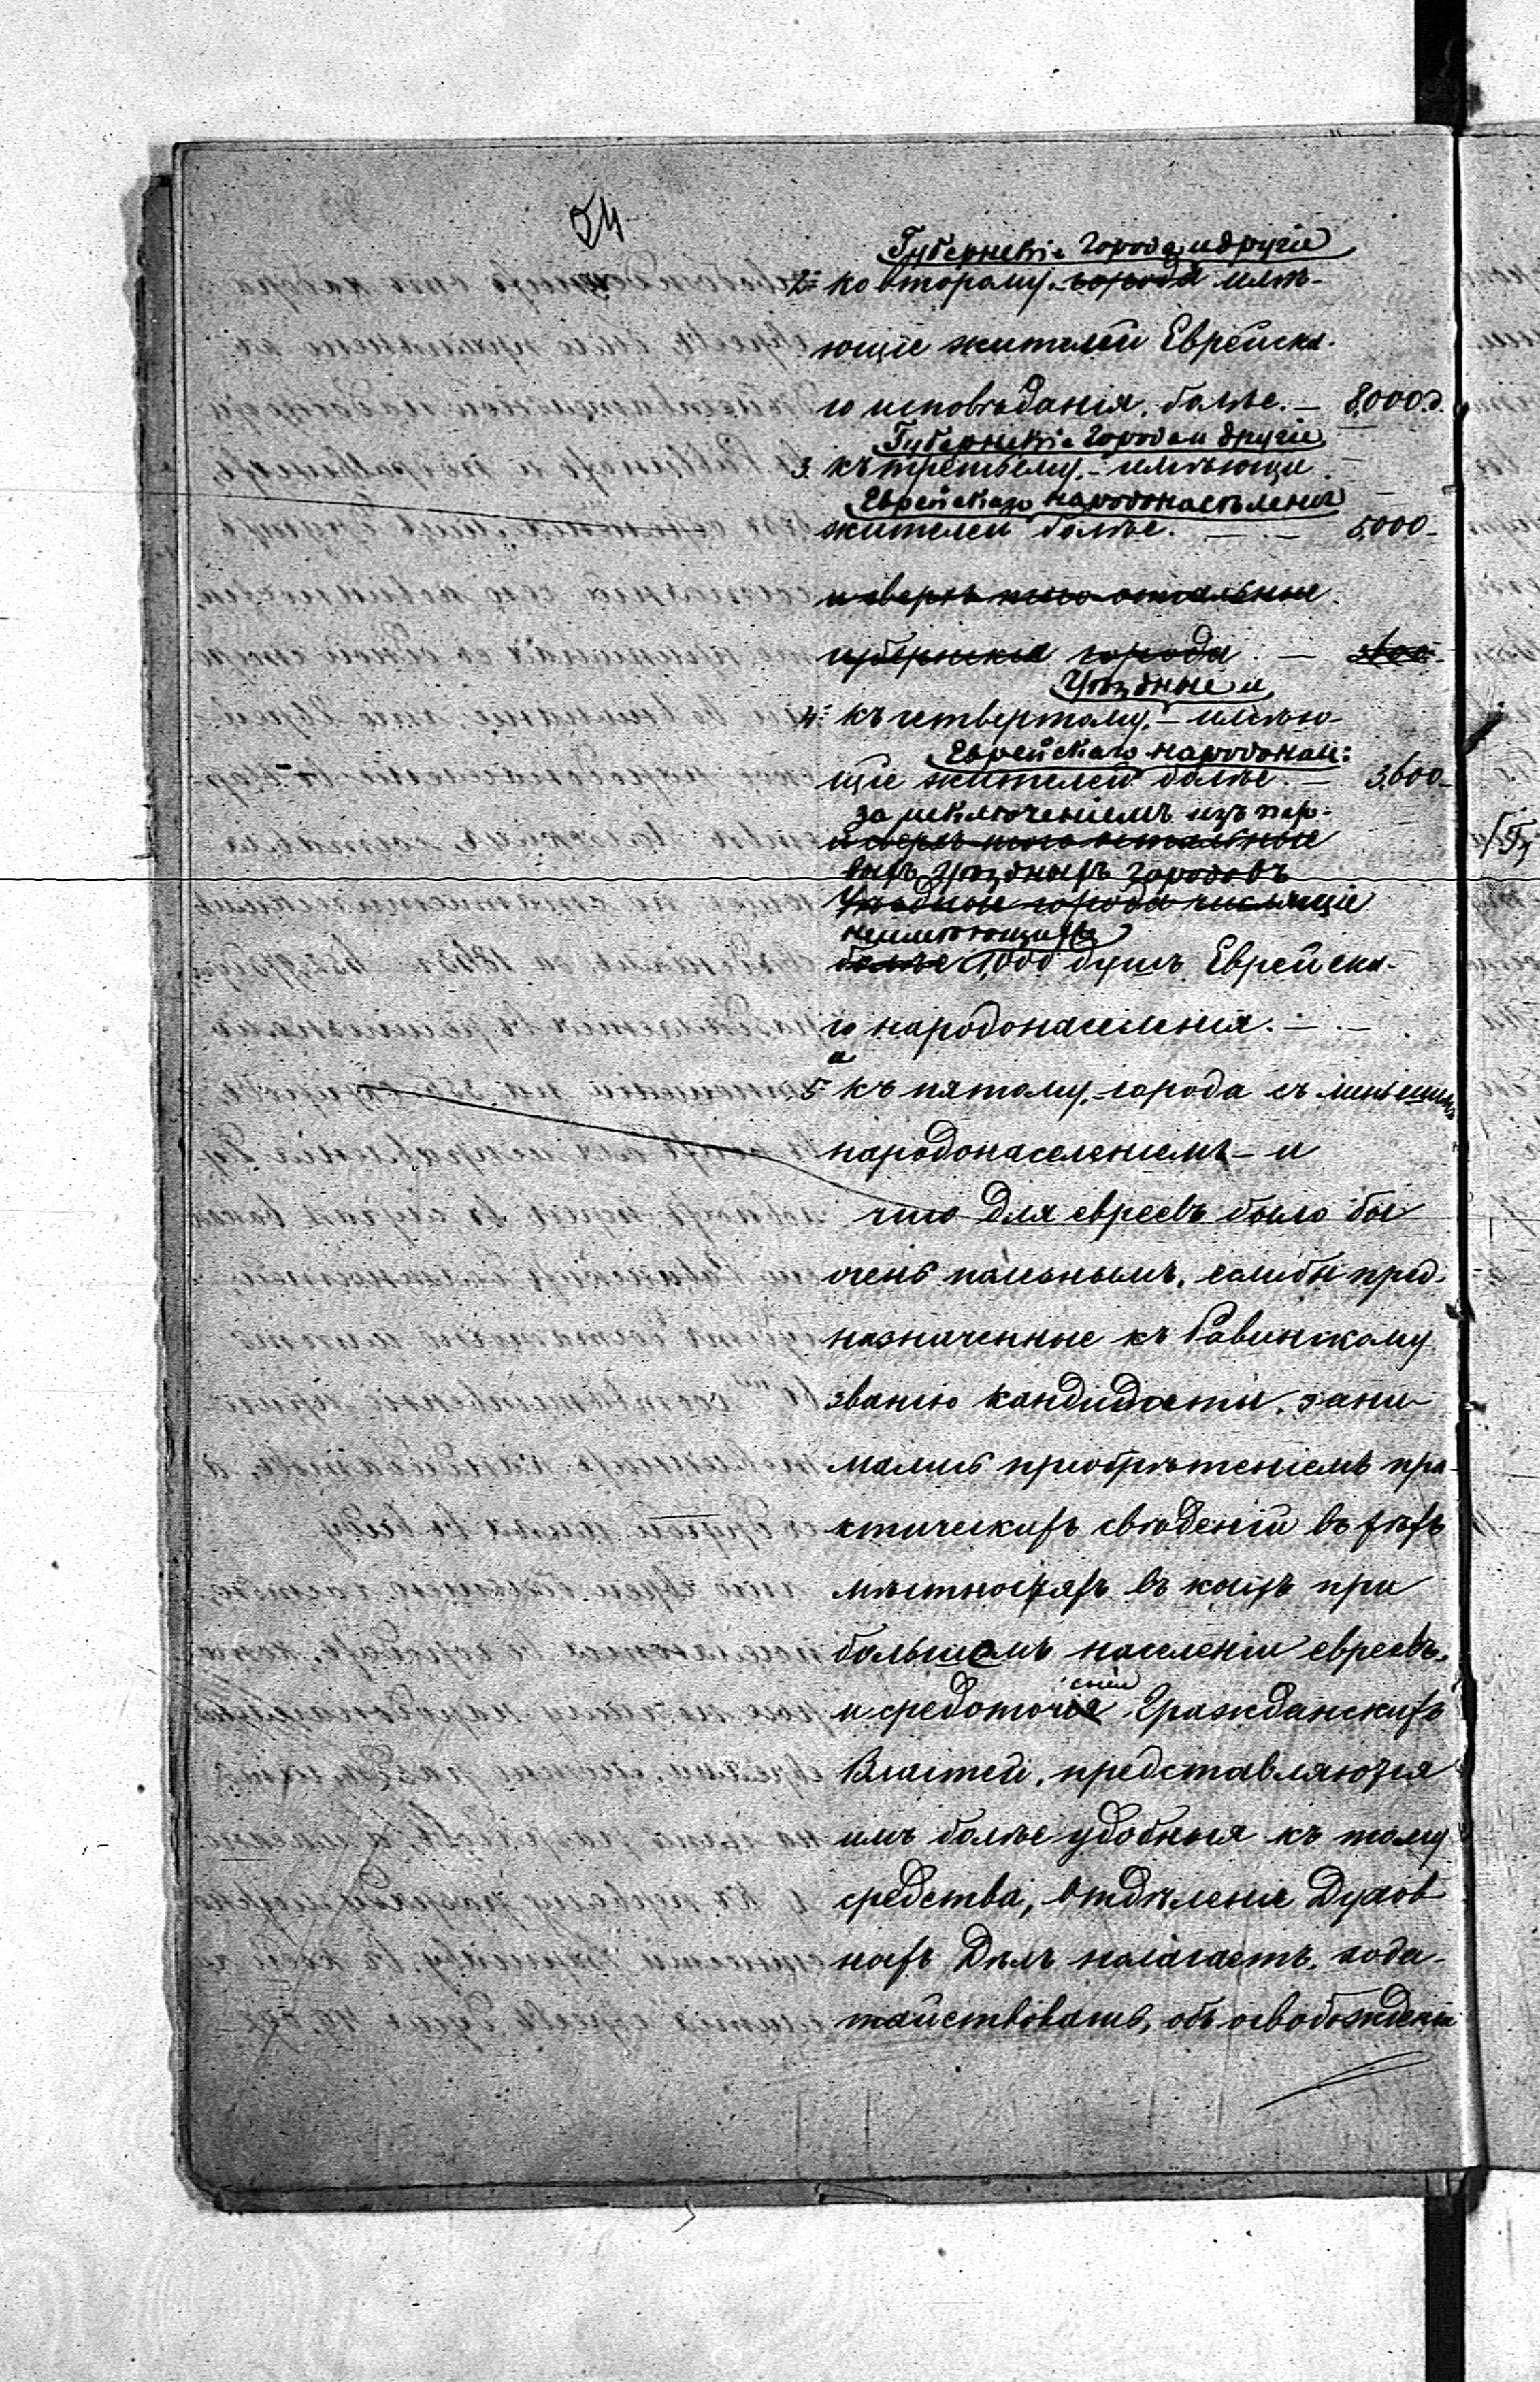 24
Губернскіе Города и другіе
2. ко второму. города имѣ-
ющіе жителей Еврейска-
го исповѣданія, болѣе. — 8,000 д.
Губернскіе Города и другіе
3. къ третьему, - имѣющіе
Еврейскаго народонаселенія
жителей болѣе. — — 5,000 -
и сверхъ того остальные
губернскіе города. —
Уѣздные и
4. къ четвертому, - имѣю-
Еврейскаго народонас:
щіе жителей болѣе. — 3,600 -
за исключеніемъ изъ пер-
и сверхъ того остальные
выхъ Уѣздныхъ Городовъ
Уѣздные города числящіе
неимѣющихъ
болѣе 1,000 душъ Еврейска-
го народонаселенія. — —
а
5. къ пятому, - города съ меньшимъ
народонаселеніемъ - и
что для евреевъ было бы
очень полезнымъ, если бы пред-
назначенные къ Равинскому
званію кандидаты, зани-
мались пріобрѣтеніемъ пра-
ктическихъ свѣденій въ тѣхъ
мѣстностяхъ въ коихъ при
большомъ населеніи евреевъ,
и средоточія Гражданскихъ
Властей, представляются
имъ болѣе удобныя къ тому
средства, Отдѣленіе Духов
ныхъ Дѣлъ полагаетъ, хода-
тайствовать, объ освобожденіи